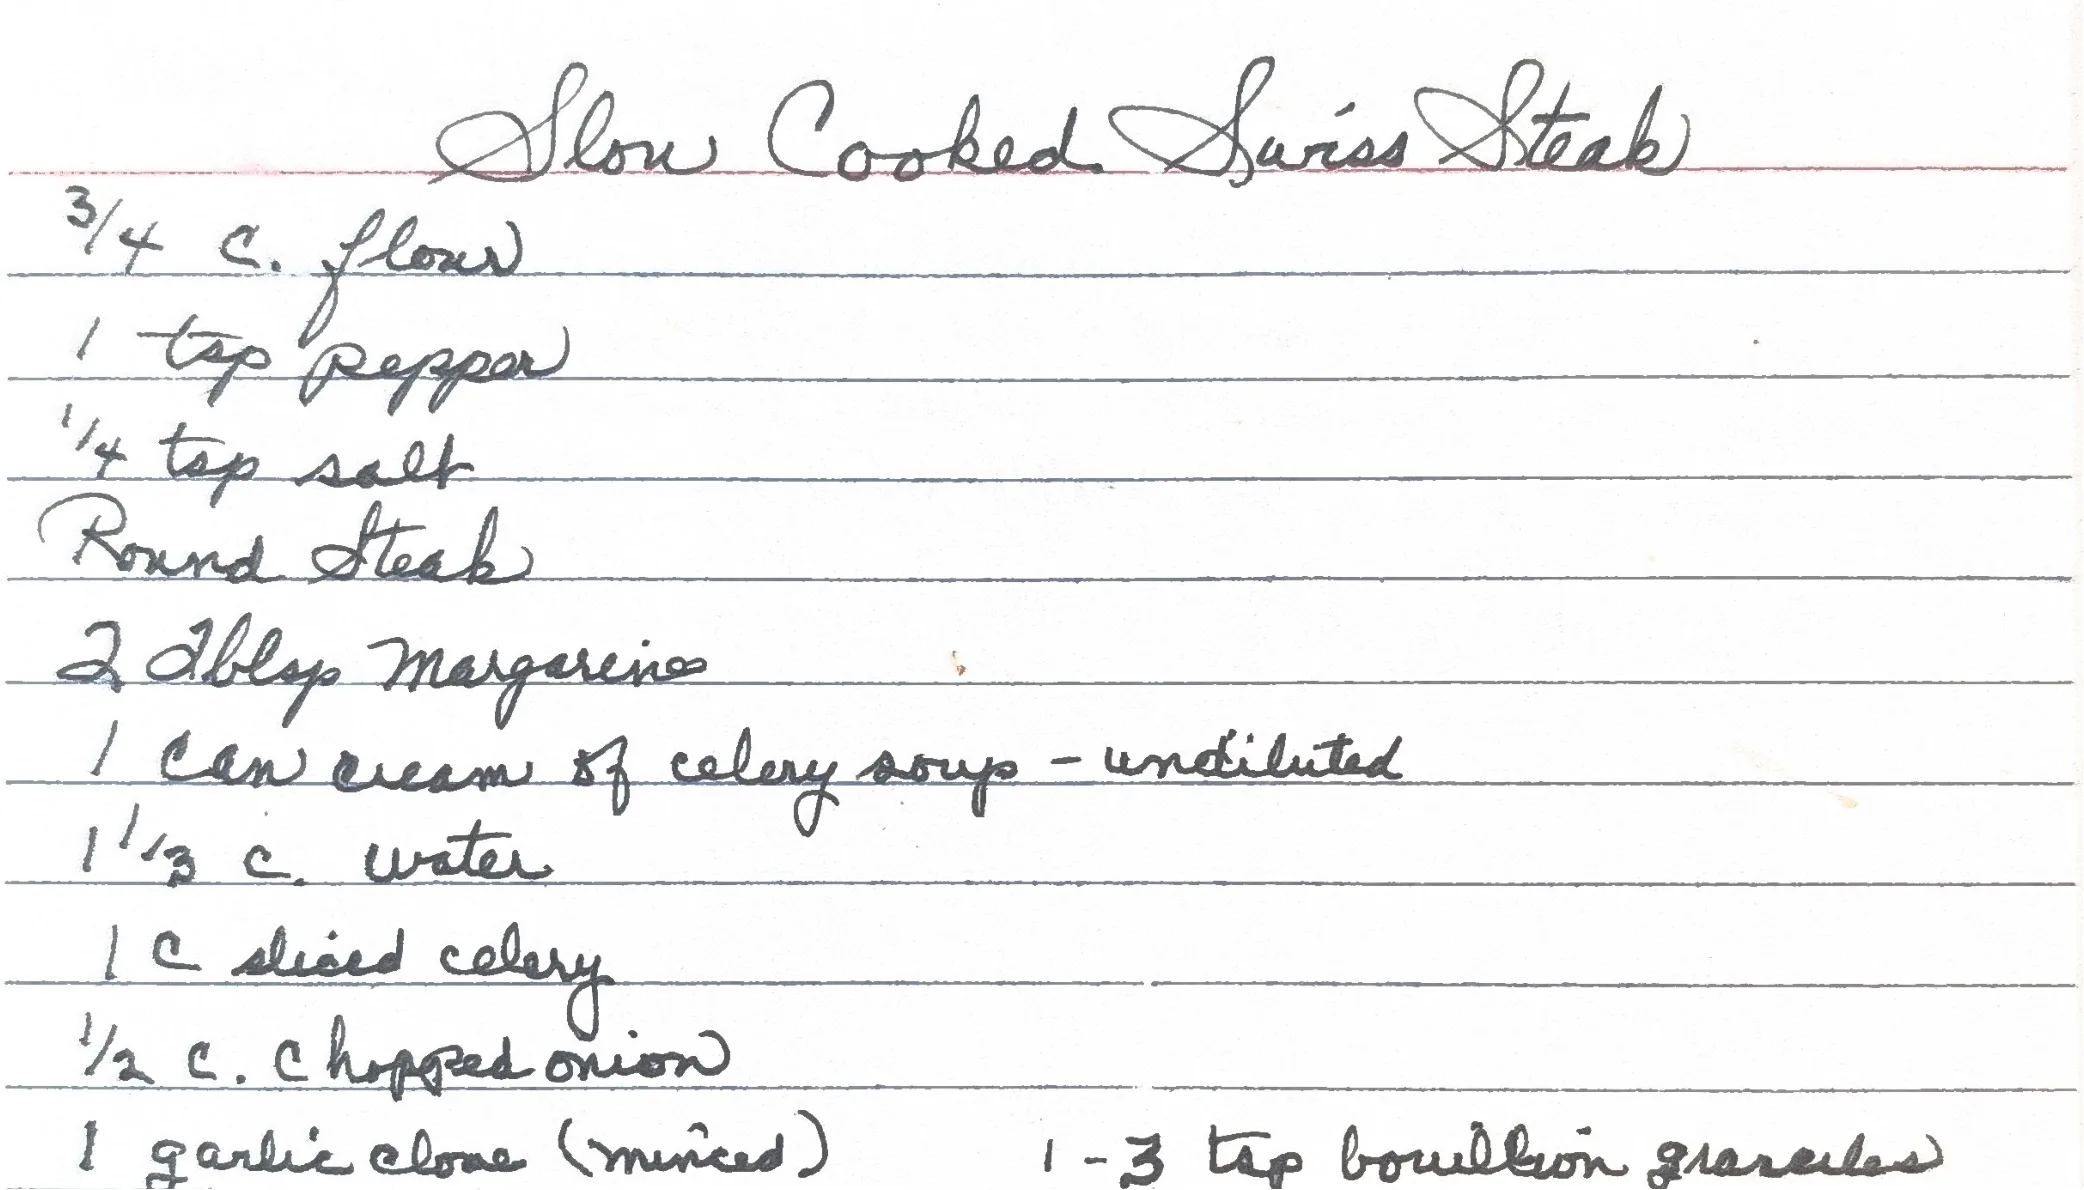 Slow Cooked Swiss Steak
3/4 c. flour
1 tsp pepper
1/4 tsp salt
Round Steak
2 Tblsp Margarine
1 can cream of celery soup - undiluted
1 1/3 c. water
1 C sliced celery
1/2 c. chopped onion
1 garlic clove (minced) 1-3 tsp bouillion granules